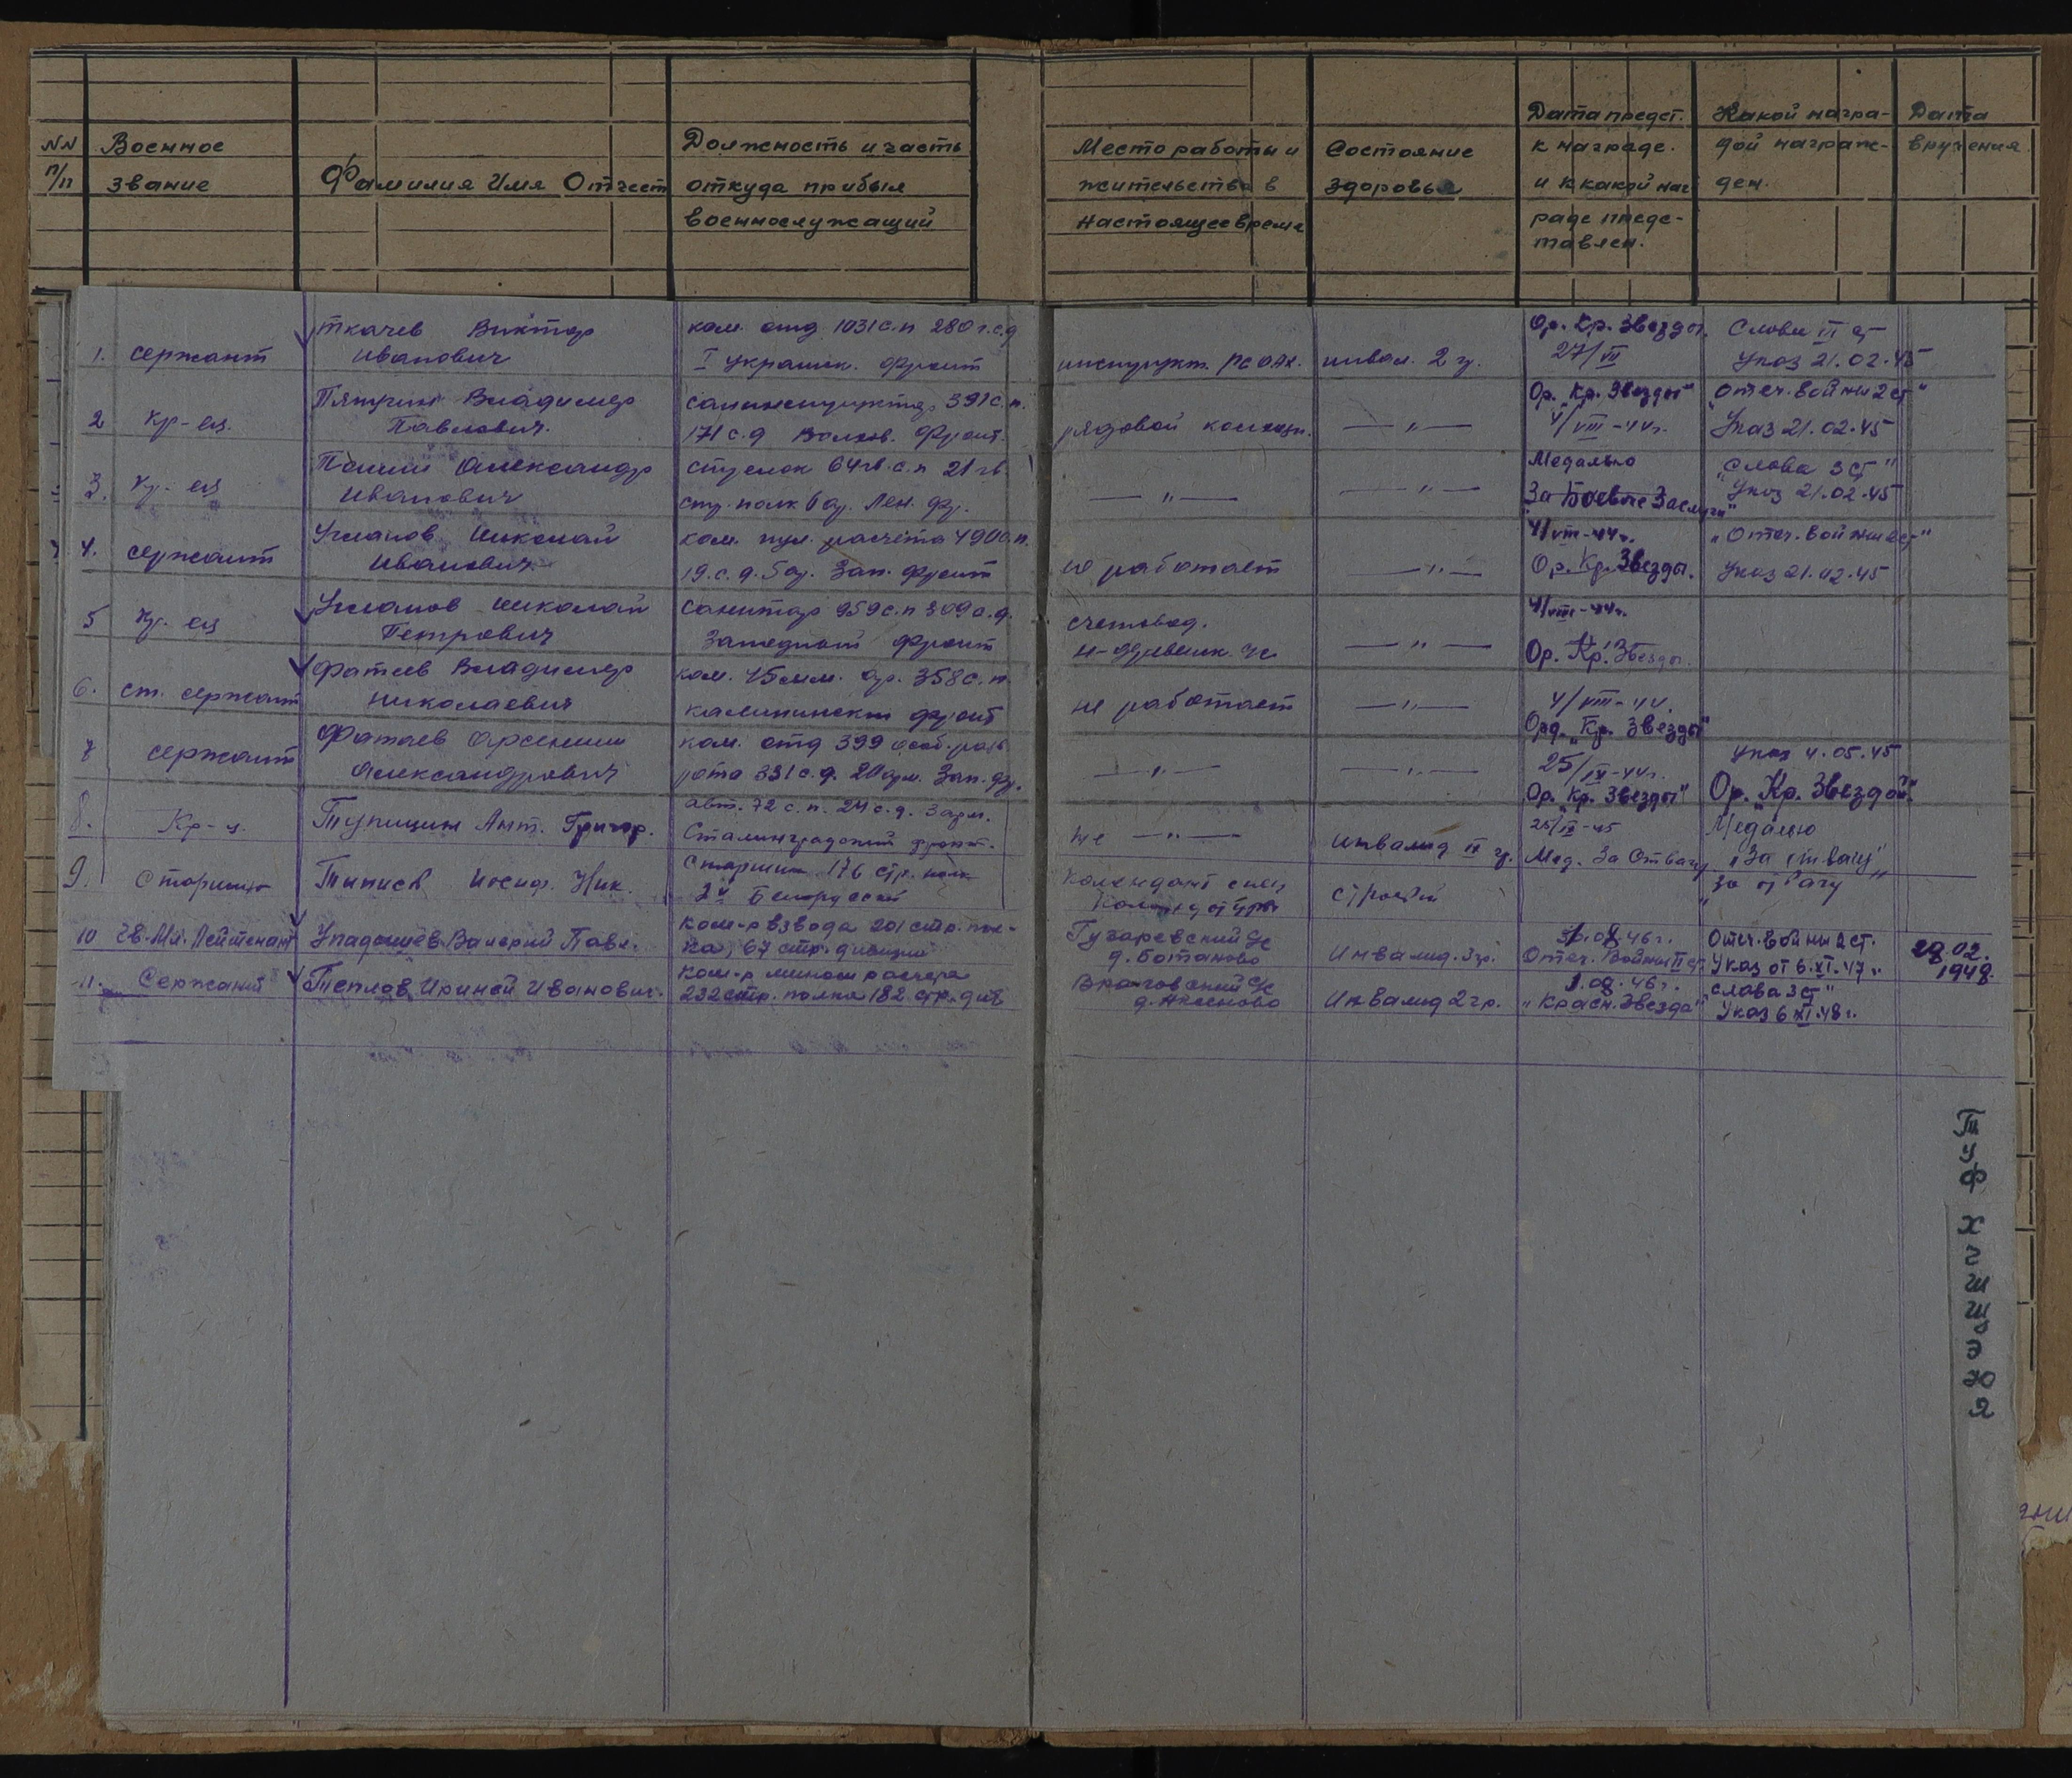 NN п/п
Военное звание
Фамилия Имя Отчест
Должность и часть
откуда прибыл
военнослужащий
Место работы и
жительства в
настоящее время
Состояние
здоровья
Дата предст.
к награде.
и к какой наг
раде предс-
тавлен.
Какой награ-
дой награж-
ден.
Дата
вручения.
1. сержант
Ткачев Виктор
Иванович
ком. отд 1031 с.п 280 с.д
I украинск. фронт
инструкт. РСОАХ. инвал. 2 г.
Ор. Кр. Звезды.
27/VII
Слова III ст
Указ 21.02.45
2 Кр-ец.
Владимир
Павлович.
санинструктор 391 с.п.
171 с.д Волхов. Фронт.
рядовой колхозн. — " —
Ор. "Кр. Звезды"
4/VIII-44г.
"Отеч. войны 2 ст"
Указ 21.02.45
3. Кр-ец
Александр
Иванович
стрелок 64 гв. с.п 21 гв.
стр. полк 6 ар. Лен. фр.
— " — — " —
Медалью
"За Боевые Заслуги"
"Слова 3 ст"
Указ 21.02.45
4. сержант
Угланов Николай
Иванович
ком. пул. расчета 490 с.п.
19. с.д. 5 ар. Зап. фронт
не работает — " —
4/VIII-44г.
Ор. Кр. Звезды.
"Отеч. войны 2 ст"
Указ 21.02.45
5 Кр-ец
Угланов Николай
Петрович
санитар 959 с.п 309 с.д.
Западный фронт
счетовод.
— " —
4/VIII-44г.
Ор. Кр. Звезды.
6. ст. сержант
Фатеев Владимир
Николаевич
ком. 45 мм. ор. 358 с.п.
Калининский фронт
не работает — " —
4/VIII-44.
Орд. "Кр. Звезды"
7 сержант
Арсений
Александрович
ком. отд 399 особ. разв
рота 331 с.д. 20 арм. Зап. фр.
— " — — " —
25/IV-44г.
Ор. "Кр. Звезды"
Указ 4.05.45
Ор. "Кр. Звездой"
8. Кр-ц.
Тупицин Ант. Григор.
авт. 72 с.п. 24 с.д. 3 арм.
Сталинградский фронт.
не — " — инвалид II гр.
25/IV-45
Мед. За Отвагу
Медалью
"За отвагу"
9. Старшина
Иосиф. Ник.
Старшина 176 стр. полк
2й Белорусский
Комендант спец
строевой
"За отвагу"
10 Гв. Мл. Лейтенант
Упадышев Валерий Павл.
Ком-р взвода 201 стр. пол-
ка, 67 стр. дивизии
д. Ботаново
Инвалид. 3 гр.
31.08.46 г.
Отеч. Войны II ст.
Отеч. войны 2 ст.
Указ от 6.XI.47 г.
28.02.
1948.
11. Сержант
Теплов Ириней Иванович.
Ком-р мином расчера
232 стр. полка 182 стр. див
д. Аксеново
Инвалид 2 гр.
1.08.46 г.
"Красн. Звезда"
"Слава 3 ст"
Указ 6 XI.48 г.
Т
У
Ф
Х
Ч
Ш
Щ
Э
Ю
Я